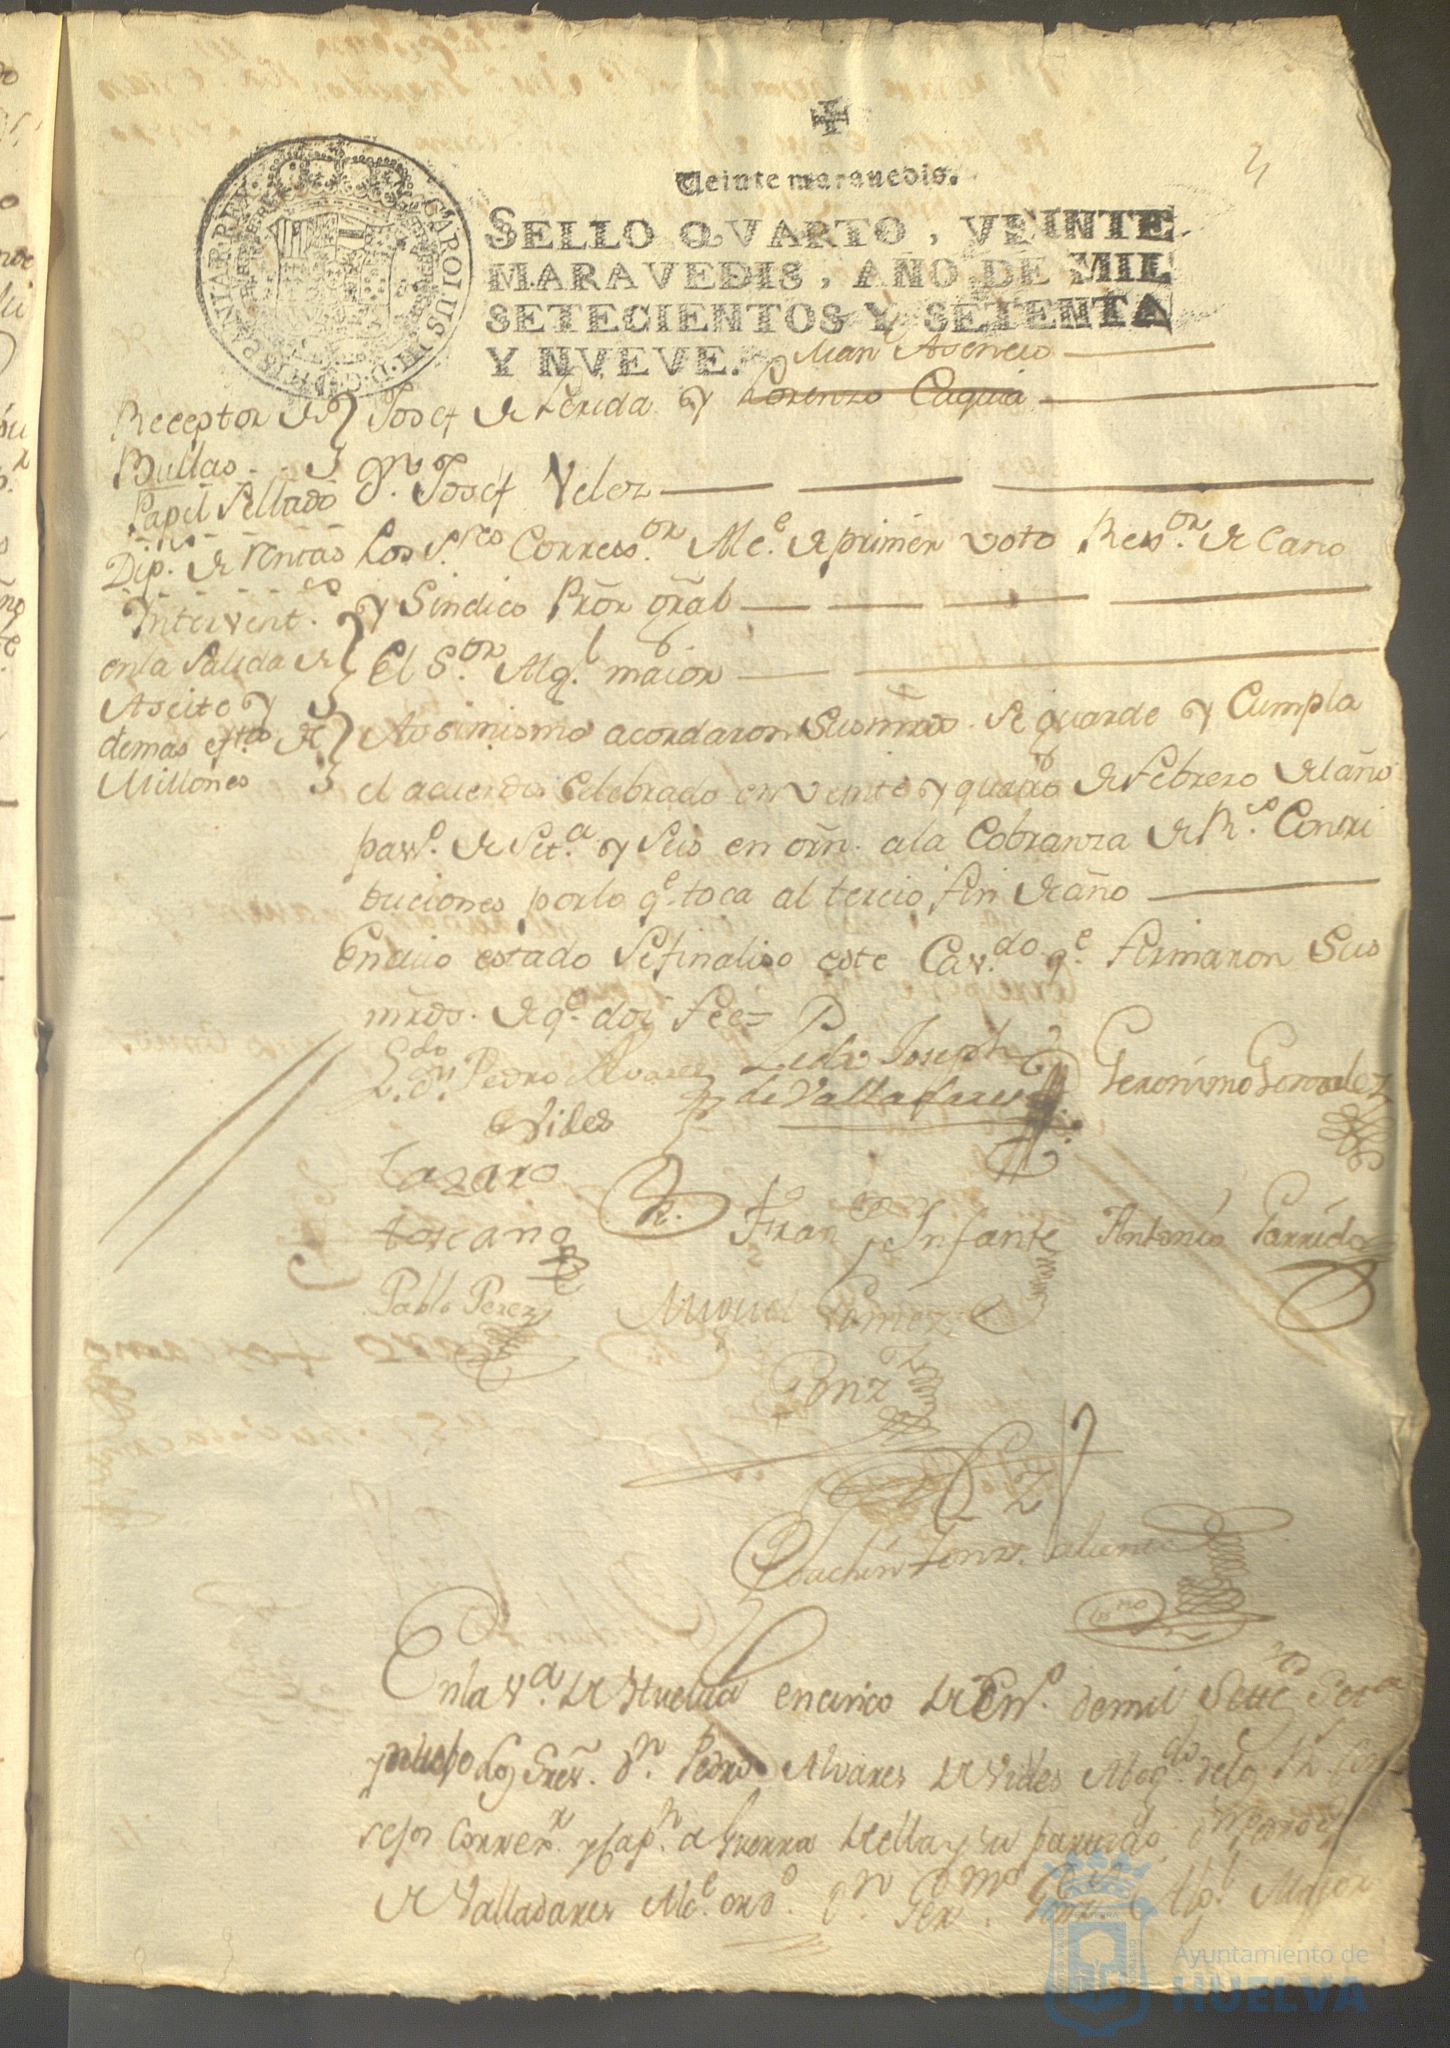 Veinte maravedis.
SELLO QVARTO, VEINTE
MARAVEDIS, AÑO DE MIL
SETECIENTOS Y SETENTA
Y NVEVE.
CAROLUS III D. G. HISPANIAR. REX
Man.l Asencio
Receptor de Josef de Lerida y Lorenzo Caquia
Bullas
Papel Sellado Dn. Josef Velez
Dip.s de rentas Los S.res Corress.or Alc.e de primer voto Rex.or de Cano
y Sindico Pror gral
Intervent.es
en la Salida de
Aseite y
demas efectos de
Millones
El S.or Alg.l maior
Assimismo acordaron Susmrds. se guarde y Cumpla
el acuerdo Celebrado en veinte y quatro de Febrero del año
passo. de Set.a y Seis en orn. ala Cobranza de R.s Contri
buciones por lo q.e toca al tercio fin de año
En cuio estado Sefinaliso este Cav.do q.e firmaron Sus
mrds. de q.e doi fee=
L.do Dn Pedro Alvarez
Vides
Pedro Joseph
de Valladares
Geronimo Gonzalez
Lazaro
toscano
Fran.co Infante
Antonio Garrido
Pablo Perez
Miguel Gomez
Gonz
Joachin
En la v.a de Huelva en cinco de En.o de mil Sett.s Set.a
y nuebe los Sres. Dn. Pedro Alvares de Vides Abog.do delos Rs. Con
sejos Corres.r y Cap.n a Guerra de ella y su partido
de Valladares Alc.e ord.o Alg.l Maior
Ayuntamiento de
HUELVA